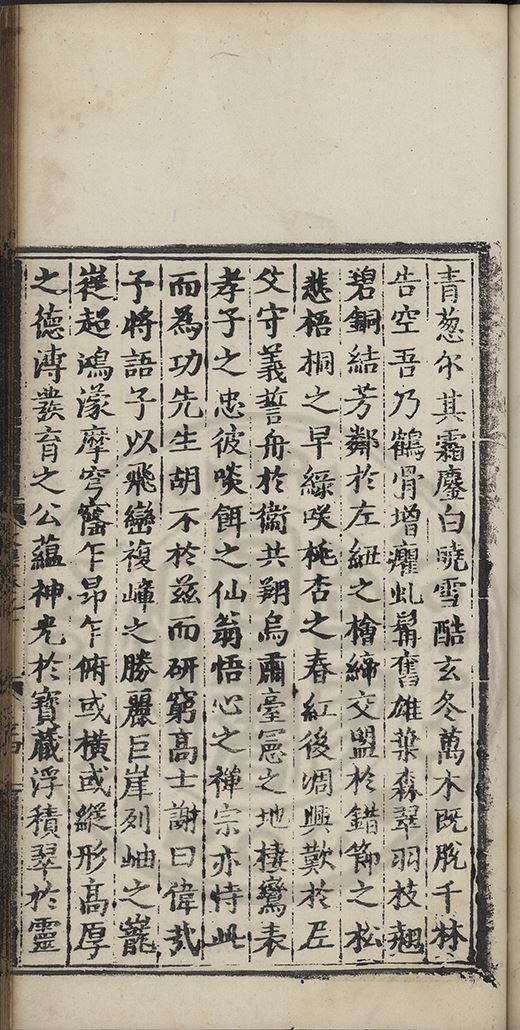 青葱尒其霜鏖白曉雪酷玄冬萬木既脫千林
告空吾乃鶴骨增癯虬髯奮雄葉森翠羽枝翹
碧銅結芳鄰於左紐之檜締交盟於錯節之松
悲梧桐之早綠咲桃杏之春紅後凋興歎於尼
父守義誓舟於衞共翔烏肅臺憲之地棲鸞表
孝子之忠彼啖餌之仙翁悟心之禪宗亦恃此
而為功先生胡不於兹而研窮高士謝曰偉哉
予將語子以飛巒複嶂之勝麗巨崖列岫之巃
嵸超鴻濛摩穹窿乍昂乍俯或橫或縱形高厚
之德溥發育之公蘊神光於寶藏浮積翠於靈